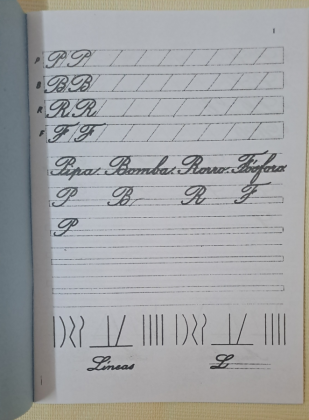 1
P P P
B B B
R R R
F F F
Pipa. Bomba. Rorro. Fósforo.
P B R F
P
Líneas L